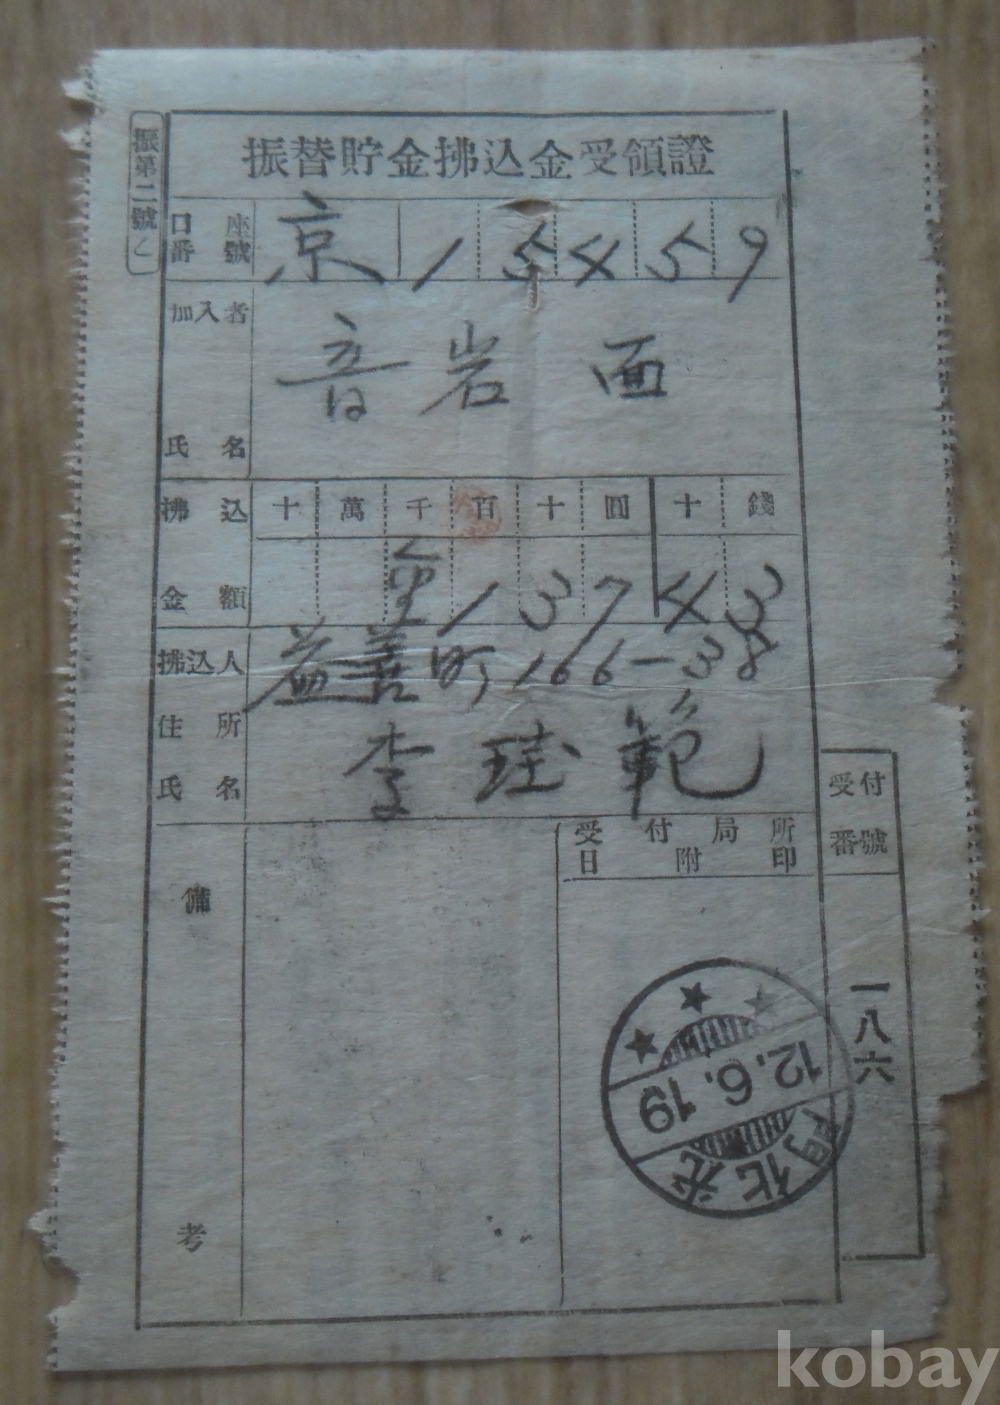 振替貯金拂込金受領證
振第二號
口座番號 京 1 5 4 5 9
加入者氏名 音岩面
拂込金額 十 萬 千 百 十 圓 十 錢
1 3 7 4 3
拂込人住所氏名 益善町166-38
李珪範
受付局所
日附印
受付番號
一八六
備考
光化門
12.6.19
kobay